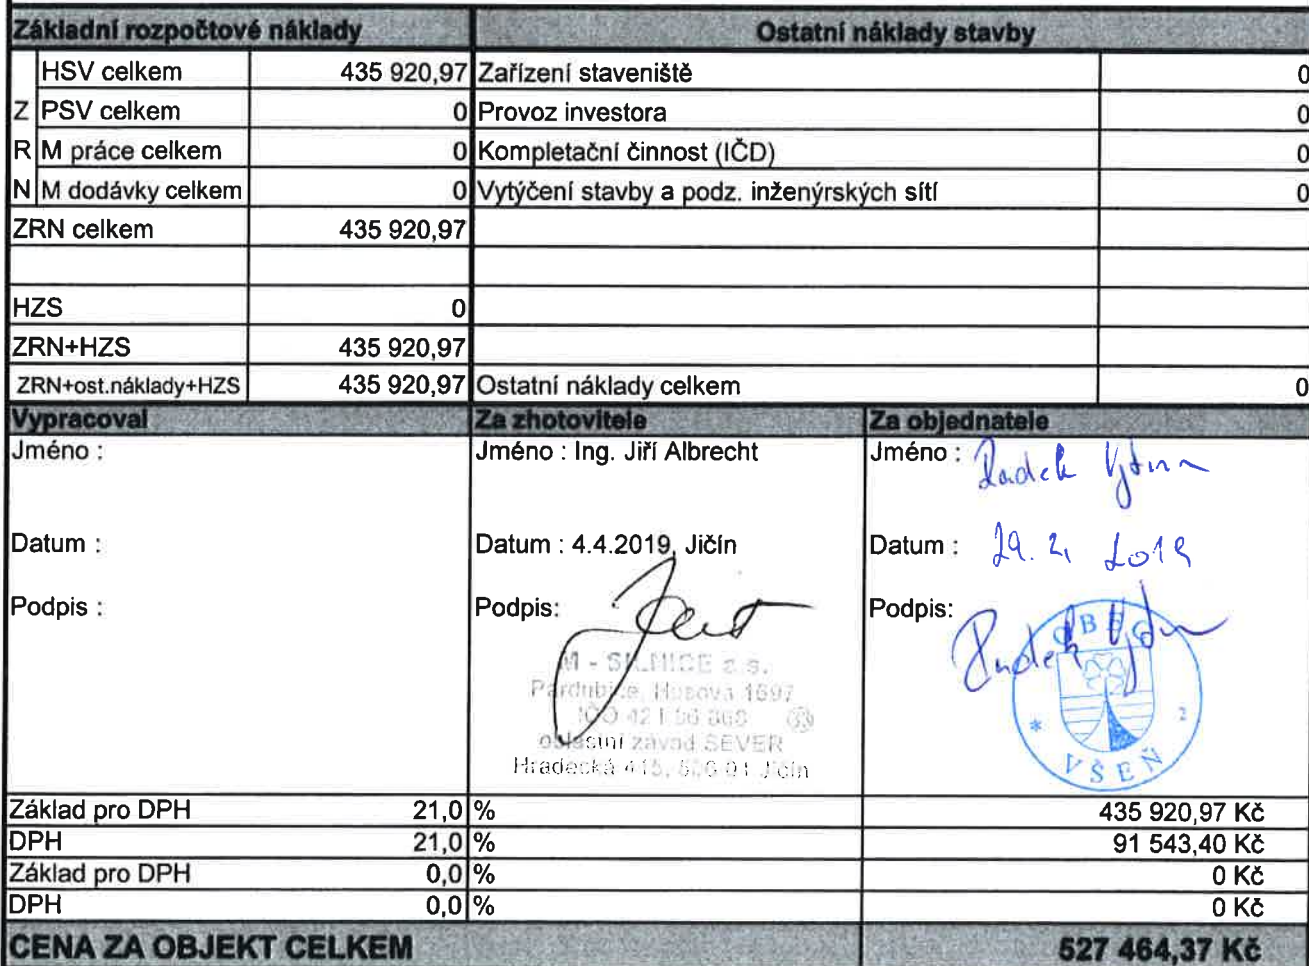 Základní rozpočtové náklady Ostatní náklady stavby
HSV celkem 435 920,97 Zařízení staveniště 0
Z PSV celkem 0 Provoz investora 0
R M práce celkem 0 Kompletační činnost (IČD) 0
N M dodávky celkem 0 Vytýčení stavby a podz. inženýrských sítí 0
ZRN celkem 435 920,97
HZS 0
ZRN+HZS 435 920,97
ZRN+ost.náklady+HZS 435 920,97 Ostatní náklady celkem 0
Vypracoval Za zhotovitele Za objednatele
Jméno : Jméno : Ing. Jiří Albrecht Jméno : Radek
Datum : Datum : 4.4.2019, Jičín Datum : 2019
Podpis : Podpis: Podpis: Radek
M - SILNICE a.s.
Pardubice, Husova 1697
IČO 42
oblastní závod SEVER
Hradecká 415, 506 01 Jičín
OBEC
2
* VŠEŇ
Základ pro DPH 21,0 % 435 920,97 Kč
DPH 21,0 % 91 543,40 Kč
Základ pro DPH 0,0 % 0 Kč
DPH 0,0 % 0 Kč
CENA ZA OBJEKT CELKEM 527 464,37 Kč